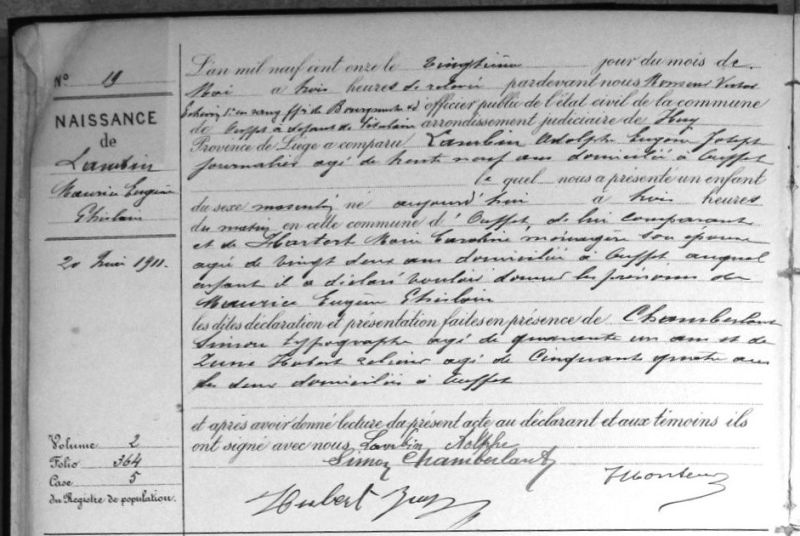 N° 19
NAISSANCE
de
Lambin
Maurice Eugène
Ghislain
20 Mai 1911.
Volume 2
Folio 364
Case 5
du Registre de population.
L'an mil neuf cent onze le vingtième jour du mois de
Mai à trois heures de relevée par devant nous Monseur Victor
Echevin officier public de l'état civil de la commune
de Ouffet à défaut de Titulaire arrondissement judiciaire de Huy
Province de Liège a comparu Lambin Adolphe Eugène Joseph
journalier agé de trente neuf ans domicilié à Ouffet
le quel nous a présenté un enfant
du sexe masculin né aujourd'hui à trois heures
du matin en cette commune d'Ouffet de lui comparant
et de Hartert Marie Caroline ménagère son épouse
agée de vingt deux ans domiciliée à Ouffet auquel
enfant il a déclaré vouloir donner les prénoms de
Maurice Eugène Ghislain
les dites déclaration et présentation faites en présence de Chamberlant
Simon typographe agé de quarante un ans et de
Hubert relieur agé de Cinquant quatre ans
les deux domiciliés à Ouffet
et après avoir donné lecture du présent acte au déclarant et aux témoins ils
ont signé avec nous Lambin Adolphe
Simon Chamberland
Hubert